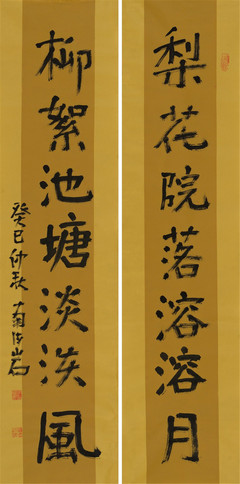 梨花院落溶溶月
柳絮池塘淡淡风
癸巳仲秋